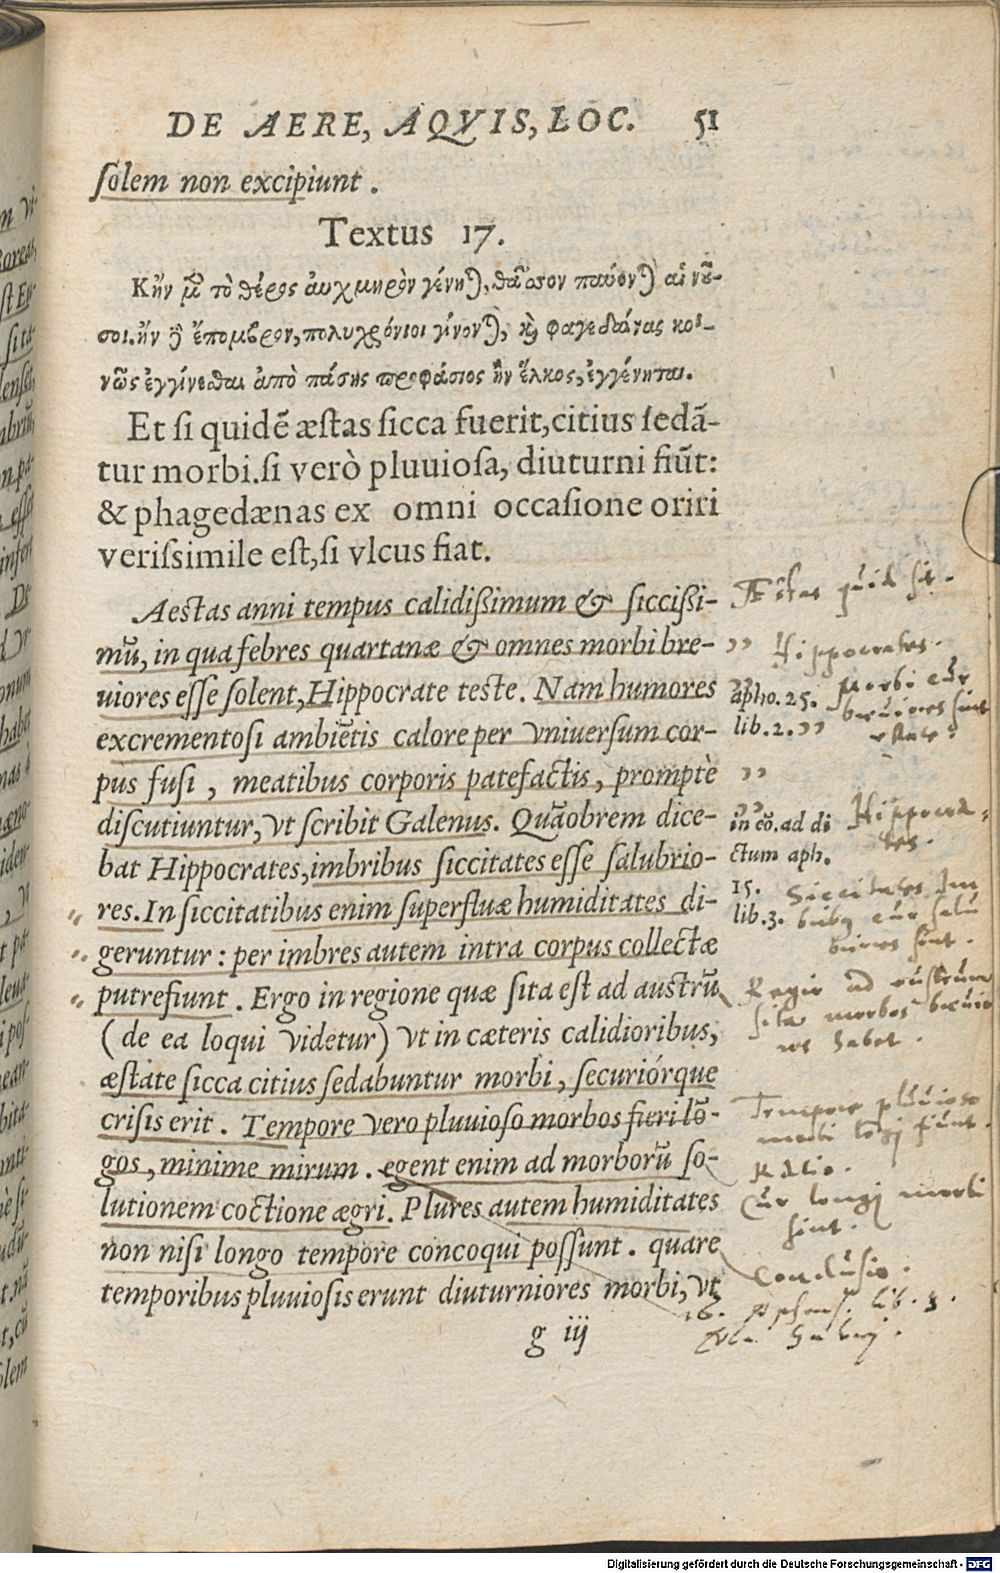 DE AERE, AQVIS, LOC. 51
solem non excipiunt.
Textus 17.
Κἢν μ̃ τὸ θέρος αὐχμηρὸν γένη), θᾶσσον παύον) αἱ νȣ̃-
σοι. ἢν ἢ ἔπομβρον, πολυχρόνιοι γίνον), κ̀ φαγεδαίνας κοι-
νῶς ἐγγίνεσθαι ἀπὸ πάσης προφάσιος ἢν ἕλκος, ἐγγένηται.
Et si quidẽ æstas sicca fuerit, citius sedã-
tur morbi. si verò pluuiosa, diuturni fiũt:
& phagedænas ex omni occasione oriri
verissimile est, si vlcus fiat.
Aestas anni tempus calidißimum & siccißi-
mũ, in qua febres quartanæ & omnes morbi bre-
uiores esse solent, Hippocrate teste. Nam humores
excrementosi ambiẽtis calore per vniuersum cor-
pus fusi, meatibus corporis patefactis, promptè
discutiuntur, vt scribit Galenus. Quãobrem dice-
bat Hippocrates, imbribus siccitates esse salubrio-
res. In siccitatibus enim superfluæ humiditates di-
geruntur: per imbres autem intra corpus collectæ
putrefiunt. Ergo in regione quæ sita est ad austrũ
(de ea loqui videtur) vt in cæteris calidioribus,
æstate sicca citius sedabuntur morbi, securiórque
crisis erit. Tempore vero pluuioso morbos fieri lõ-
gos, minime mirum. egent enim ad morborũ so-
lutionem coctione ægri. Plures autem humiditates
non nisi longo tempore concoqui possunt. quare
temporibus pluuiosis erunt diuturniores morbi, vt
g iij
Æstas quid sit.
Hippocrates.
apho. 25.
lib. 2.
Morbi cur
breuiores sint
æstate?
in cõ. ad di
ctum aph.
15.
lib. 3.
Hippocra-
tes.
Siccitates Im
bribq cur salu
briores sint.
Regio ad austrum
sita morbos breuio
res habet.
Tempore pluuioso
morbi lõgi fiunt.
Ratio.
Cur longi morbi
sint.
Conclusio.
16. Aphoris. lib. 3.
Digitalisierung gefördert durch die Deutsche Forschungsgemeinschaft - DFG